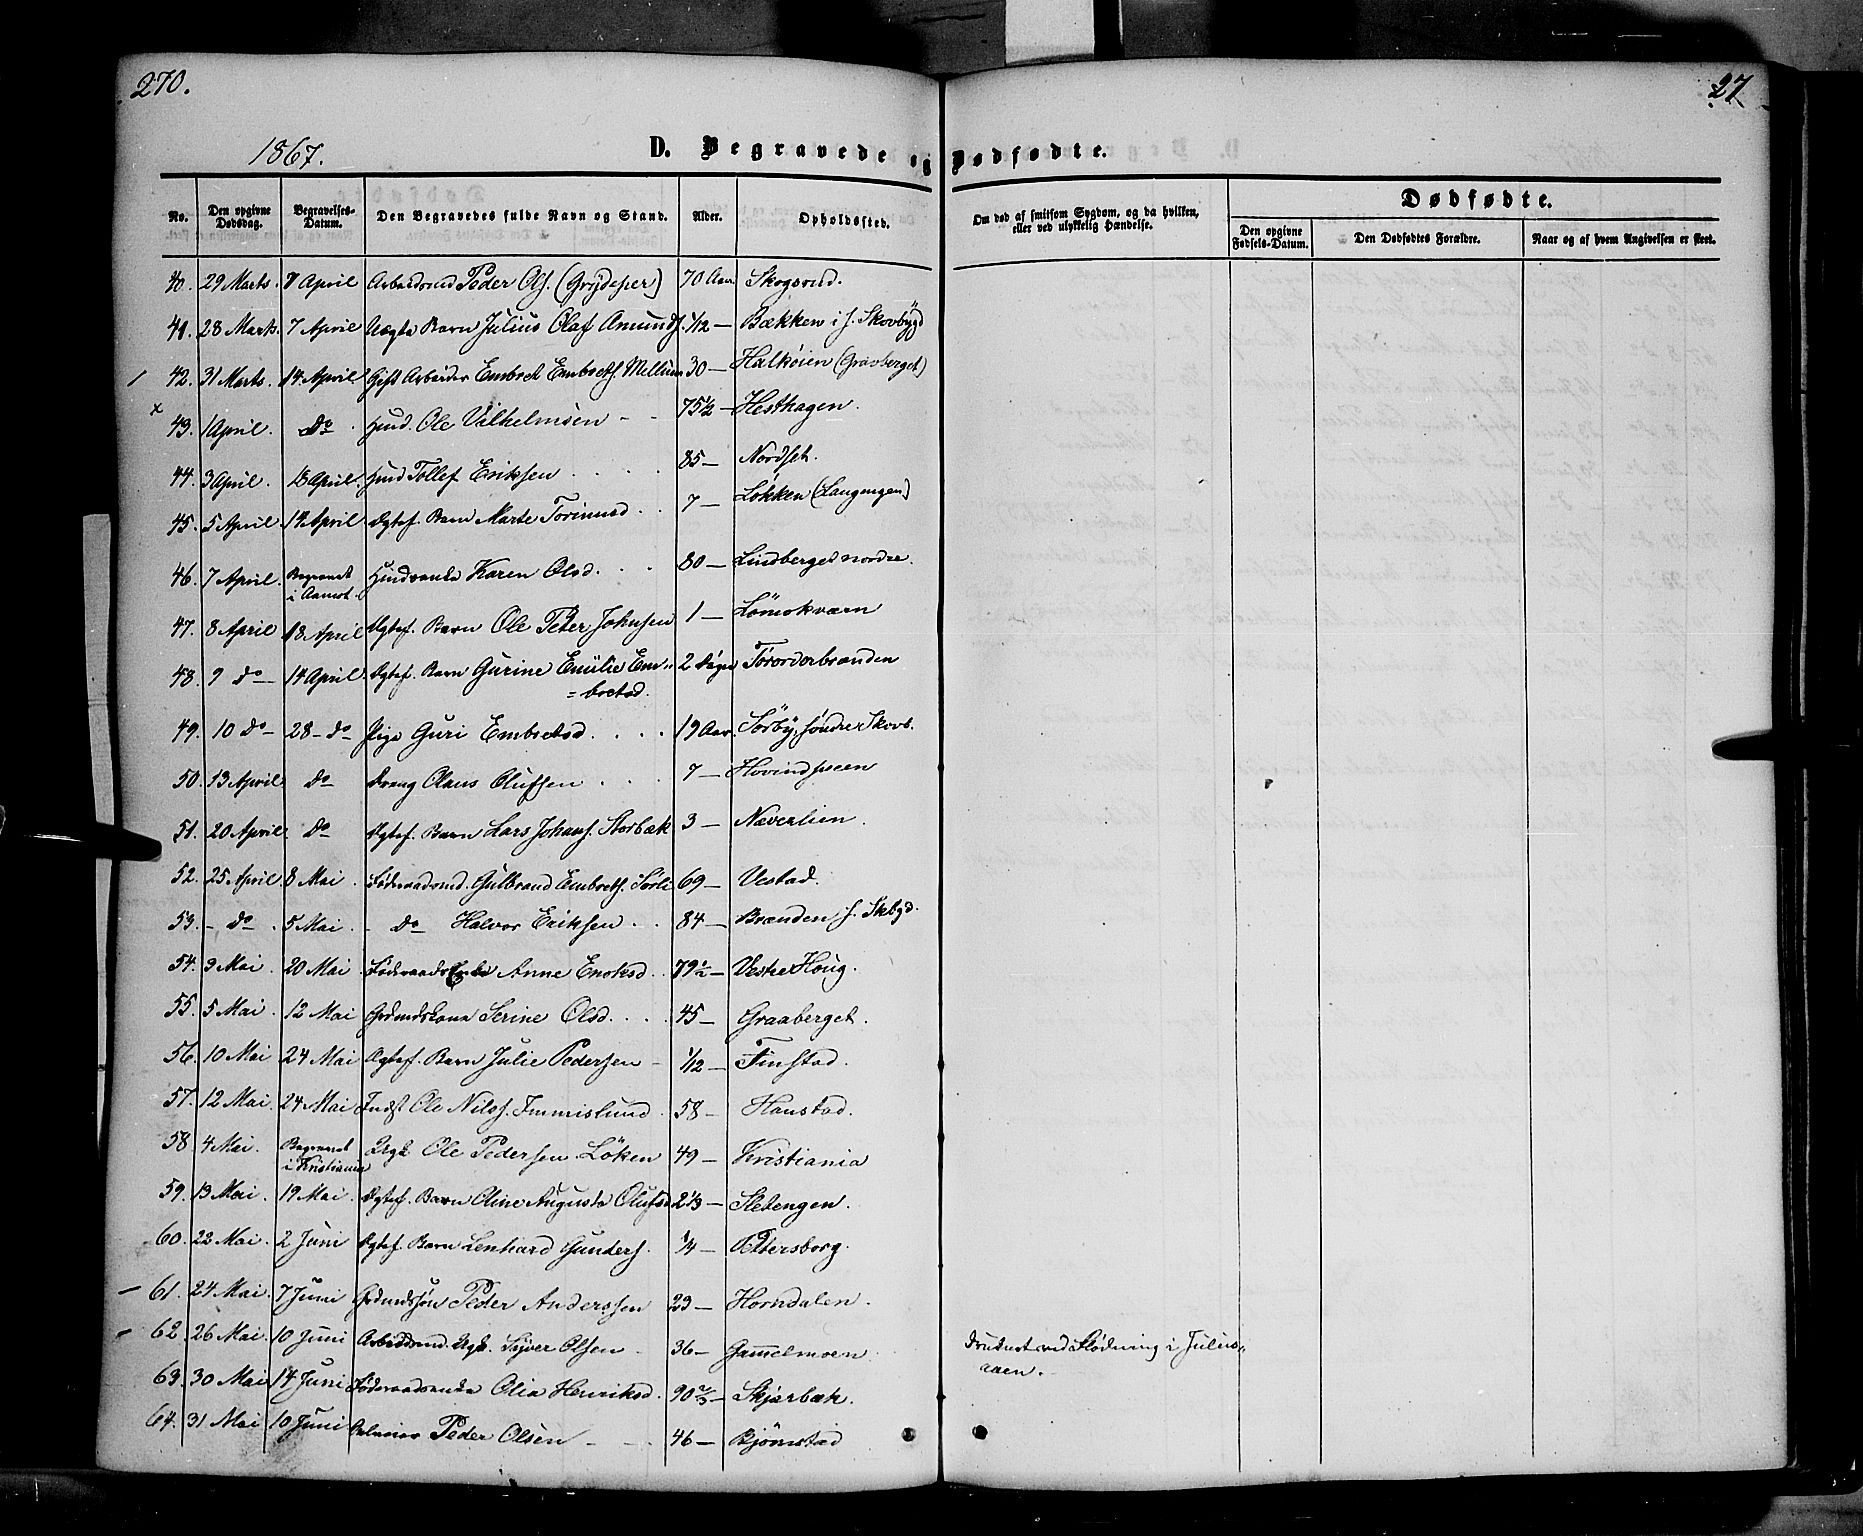 270.
27
1867.
D. Begravede og Dødfødte.
No. | Den opgivne Dødsdag. | Begravelses-Datum. | Den Begravedes fulde Navn og Stand. | Alder. | Opholdssted. | Om død af smitsom Sygdom, og da hvilken, eller ved ulykkelig Hændelse. | Dødfødte.
Den opgivne Fødsels-Datum. | Den Dødfødtes Forældre. | Naar og af hvem Angivelsen er skeet.
40. 29 Marts. 7 April Arbeidsmd Peder Ols. (Grydeper) 70 Aar Skogsrud.
41. 28 Marts. 7 April Uægte Barn Julius Olaf Amunds. 1/12 — Bækken i s. Skovbygd
42. 31 Marts. 14 April Gift Arbeider Embret Embrets. Mellum 30 — Halkøien (Gravberget)
x 43. 1 April. Do Huusmd. Ole Vilhelmsen 75 1/2 — Hesthagen.
44. 3 April. 13 April. Tollef Eriksen 85 — Nordset.
45. 5 April. 14 April Ægtef. Barn Marte 7 — Løkken (Langengen)
46. 7 April. Begravet i Aamot. Karen Olsd. 80 — Lindberget nordre.
47. 8 April 18 April Ægtef. Barn Ole Peter Johnsen 1 — Lømokværn
48. 9 Do 14 April Ægtef. Barn Gurine Emilie Em-
=bretsd. 2 Døgn
49. 10 Do 28 Do Pige Guri Embretsd. 19 Aar. Sørby, søndre Skovb.
50. 13 April Do Dreng Olaus Olufsen 7 — Hovindsveen
51. 20 April. Do Ægtef. Barn Lars Johans. Storbæk 3 — Næverlien.
52. 25 April 8 Mai. Føderaadsmd. Gulbrand Embrets. Sørli 69 — Vestad.
53. Do. 5 Mai. Do Halvor Eriksen 84 — Brænden, s. Skbgd.
54. 3 Mai. 20 Mai. Føderaads Enke Anne Enoksd. 79 1/2 — Vestre Houg.
55. 5 Mai. 12 Mai Grdmdskone Serine Olsd. 45 — Graaberget.
56. 10 Mai 24 Mai Ægtef. Barn Julie Pedersen 1/12 — Finstad.
57. 12 Mai. 24 Mai Indst Ole Nils. Immislund. 58 — Hanstad.
58 4 Mai. Begravet i Kristiania Ugk Ole Pedersen Løken 49 — Kristiania
59. 13 Mai. 19 Mai. Ægtef. Barn Oline Augusta Olufsd. 2 1/3 — Sletengen.
60. 22 Mai. 2 Juni Ægtef. Barn Lenhard Gunders. 1/4 — Petersborg.
61. 24 Mai. 7 Juni Grdmdssøn Peder Anderssen 23 — Horndalen.
62. 26 Mai. 10 Juni Arbeidsmd. Ugk. Syver Olsen 36 — Gammelmoen. Druknet ved Flødning i Julus-
aaen.
63. 30 Mai 14 Juni Føderaadsenke Olia Henriksd. 90 2/3 — Skjærbæk.
64. 31 Mai 10 Juni Peder Olsen 46 — Bjørnstad